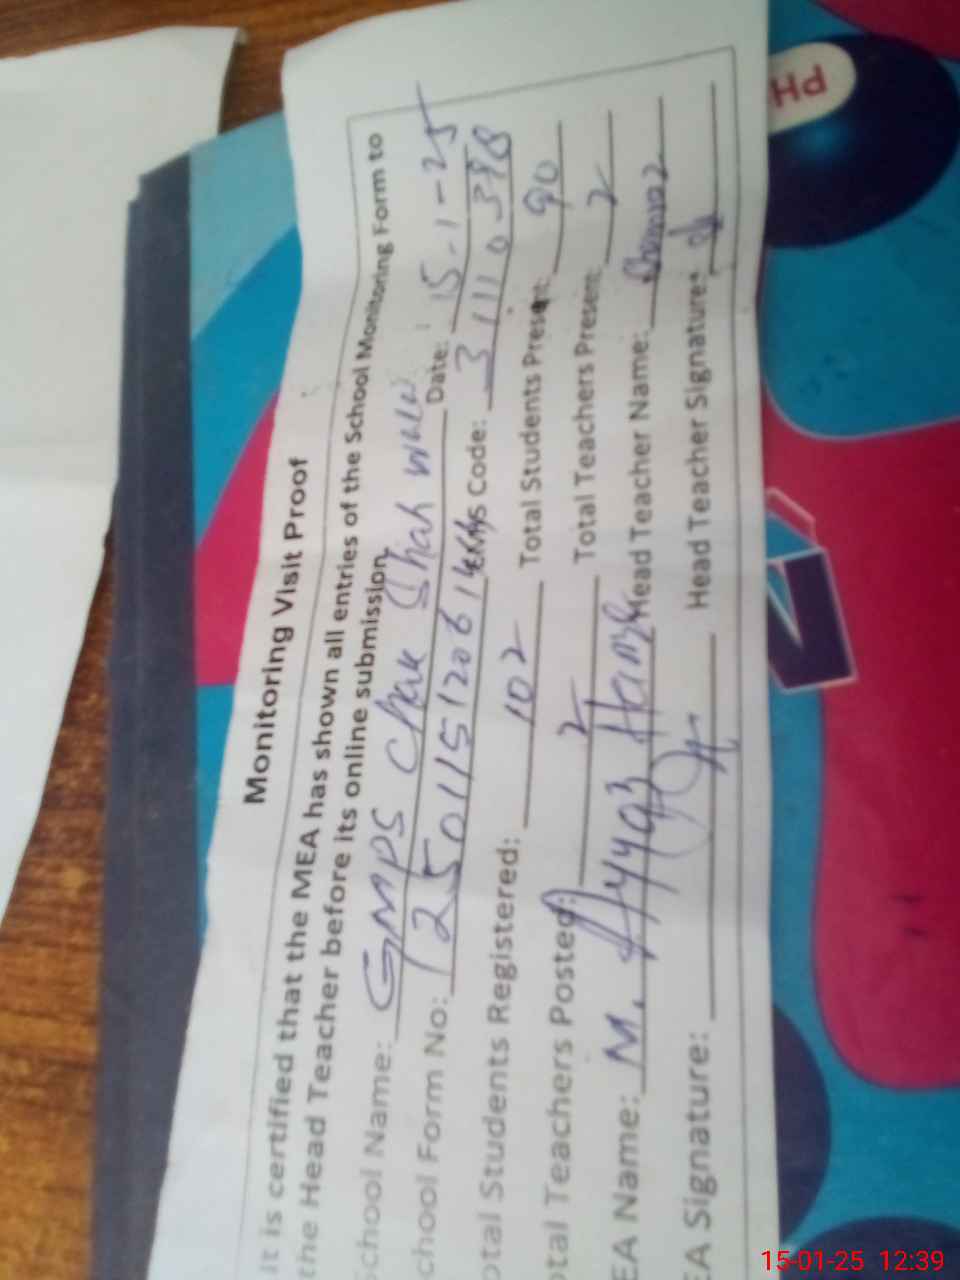 Monitoring Visit Proof
It is certified that the MEA has shown all entries of the School Monitoring Form to
the Head Teacher before its online submission
chool Name: GMPS Chak Shah wala Date: 15-1-25
chool Form No: Code: 31110398
otal Students Registered: 102 Total Students Present: 90
otal Teachers Posted: 2 Total Teachers Present: 2
EA Name: M. Ayyaz Hamza Head Teacher Name:
EA Signature: Head Teacher Signature:
PH
15-01-25 12:39